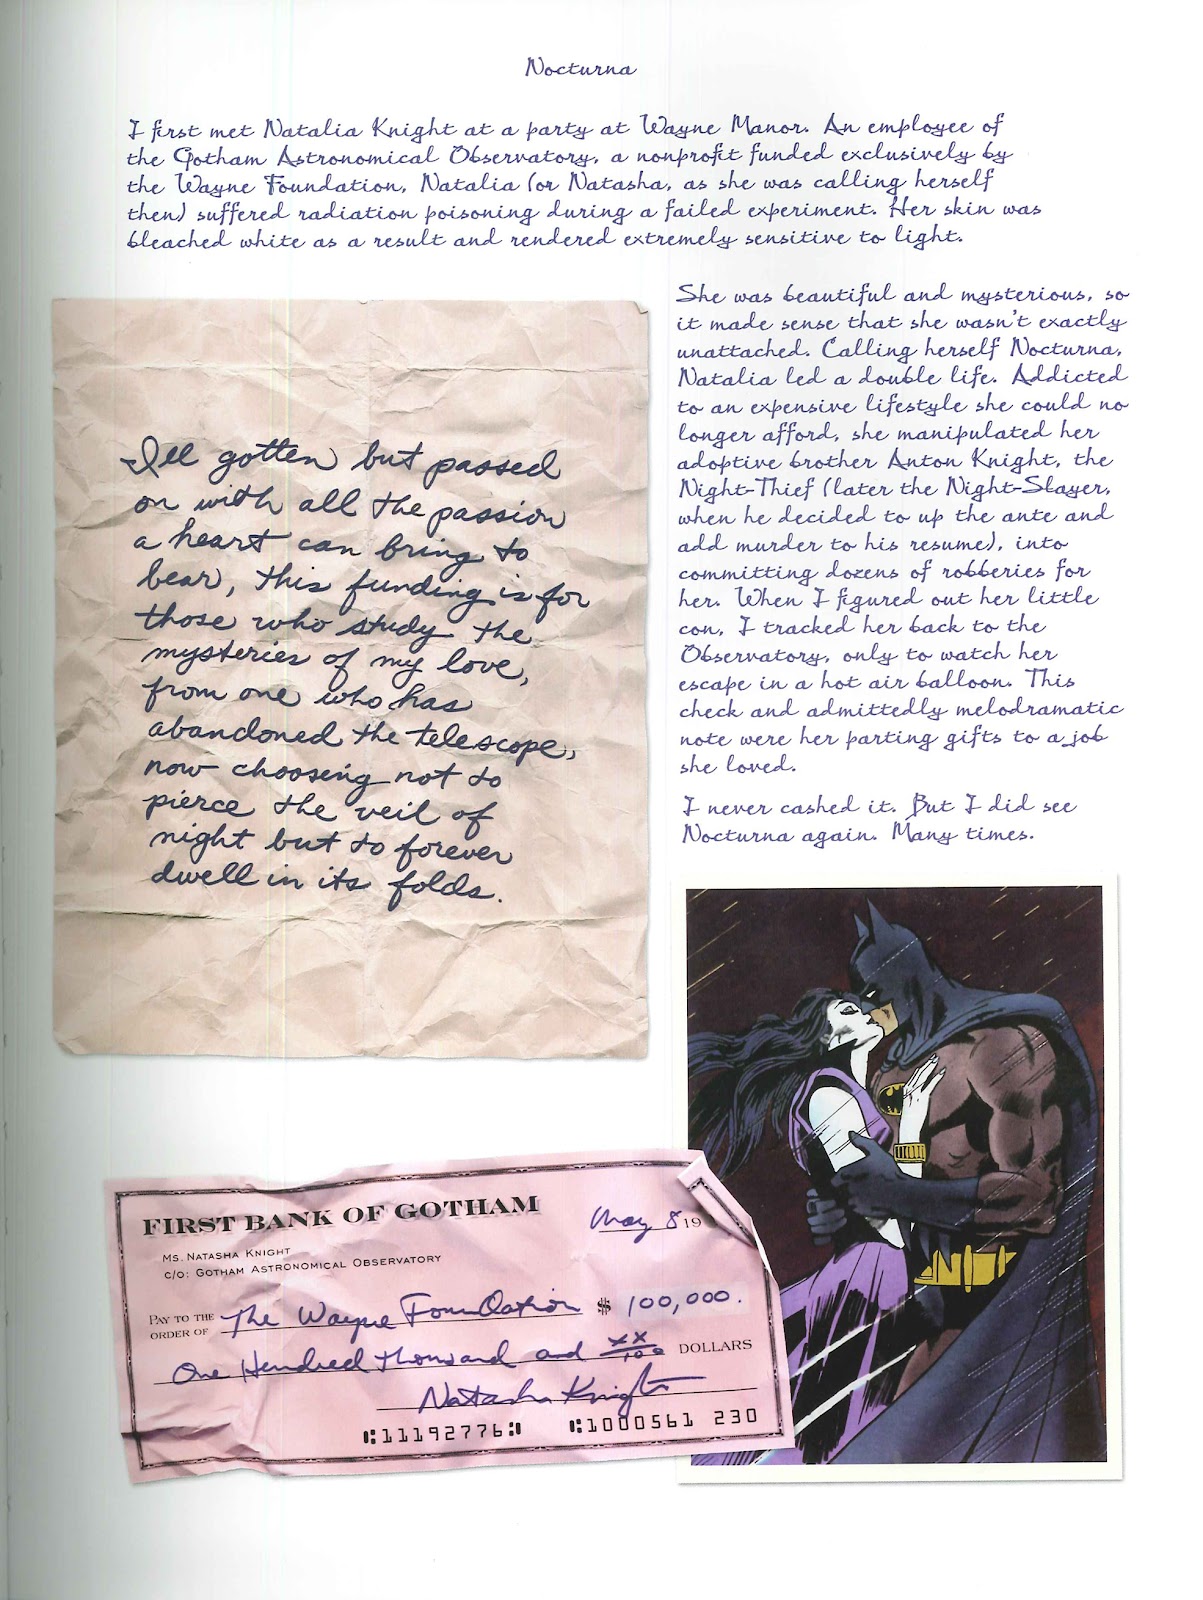 Nocturna
I first met Natalia Knight at a party at Wayne Manor. An employee of
the Gotham Astronomical Observatory, a nonprofit funded exclusively by
the Wayne Foundation, Natalia (or Natasha, as she was calling herself
then) suffered radiation poisoning during a failed experiment. Her skin was
bleached white as a result and rendered extremely sensitive to light.
Ill gotten but passed
on with all the passion
a heart can bring to
bear, this funding is for
those who study the
mysteries of my love,
from one who has
abandoned the telescope,
now choosing not to
pierce the veil of
night but to forever
dwell in its folds.
She was beautiful and mysterious, so
it made sense that she wasn't exactly
unattached. Calling herself Nocturna,
Natalia led a double life. Addicted
to an expensive lifestyle she could no
longer afford, she manipulated her
adoptive brother Anton Knight, the
Night-Thief (later the Night-Slayer,
when he decided to up the ante and
add murder to his resume), into
committing dozens of robberies for
her. When I figured out her little
con, I tracked her back to the
Observatory, only to watch her
escape in a hot air balloon. This
check and admittedly melodramatic
note were her parting gifts to a job
she loved.
I never cashed it. But I did see
Nocturna again. Many times.
FIRST BANK OF GOTHAM
May 8 19
MS. NATASHA KNIGHT
C/O: GOTHAM ASTRONOMICAL OBSERVATORY
PAY TO THE ORDER OF The Wayne Foundation $ 100,000.
One Hundred thousand and xx/100 DOLLARS
Natasha Knight
⑆11192776⑆ ⑆1000561 230